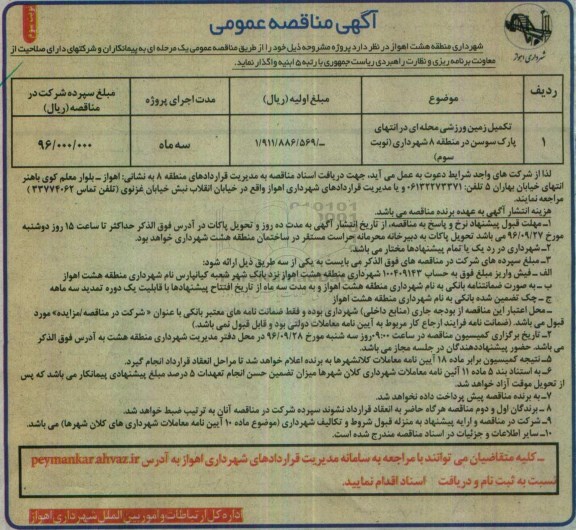 نوبت سوم
آگهی مناقصه عمومی
شهرداری اهواز
شهرداری منطقه هشت اهواز در نظر دارد پروژه مشروحه ذیل خود را از طریق مناقصه عمومی یک مرحله ای به پیمانکاران و شرکتهای دارای صلاحیت از
معاونت برنامه ریزی و نظارت راهبردی ریاست جمهوری با رتبه ۵ ابنیه واگذار نماید.
ردیف موضوع مبلغ اولیه (ریال) مدت اجرای پروژه مبلغ سپرده شرکت در مناقصه (ریال)
۱ تکمیل زمین ورزشی محله ای در انتهای پارک سوسن در منطقه ۸ شهرداری (نوبت سوم) ۱/۹۱۱/۸۸۶/۵۶۹/ـ سه ماه ۹۶/۰۰۰/۰۰۰
لذا از شرکت های واجد شرایط دعوت به عمل می آید، جهت دریافت اسناد مناقصه به مدیریت قراردادهای منطقه ۸ به نشانی: اهواز ـ بلوار معلم کوی باهنر
انتهای خیابان بهاران ۵ تلفن: ۰۶۱۳۲۲۷۳۳۷۱ و یا مدیریت قراردادهای شهرداری اهواز واقع در خیابان انقلاب نبش خیابان غزنوی (تلفن تماس ۳۳۷۷۴۰۶۲)
مراجعه نمایند.
هزینه انتشار آگهی به عهده برنده مناقصه می باشد.
۱ـ مهلت قبول پیشنهاد نرخ و پاسخ به مناقصه، از تاریخ انتشار آگهی به مدت ده روز و تحویل پاکات در آدرس فوق الذکر حداکثر تا ساعت ۱۵ روز دوشنبه
مورخ ۹۶/۰۹/۲۷ می باشد تحویل پاکات به دبیرخانه محرمانه حراست مستقر در ساختمان منطقه هشت شهرداری خواهد بود.
۲ـ شهرداری در رد یک یا تمام پیشنهادها مختار می باشد.
۳ـ مبلغ سپرده های شرکت در مناقصه های فوق الذکر می بایست به یکی از سه طریق ذیل ارائه شود:
الف ـ فیش واریز مبلغ فوق به حساب ۱۰۰۴۰۹۱۴۳ شهرداری منطقه هشت اهواز نزد بانک شهر شعبه کیانپارس نام شهرداری منطقه هشت اهواز
ب ـ به صورت ضمانتنامه بانکی به نام شهرداری منطقه هشت اهواز و به مدت سه ماه از تاریخ افتتاح پیشنهادها با قابلیت یک دوره تمدید سه ماهه
ج ـ چک تضمین شده بانکی به نام شهرداری منطقه هشت اهواز
ـ محل اعتبار این مناقصه از بودجه جاری (منابع داخلی) شهرداری بوده و فقط ضمانت نامه های معتبر بانکی با عنوان «شرکت در مناقصه/مزایده» مورد
قبول می باشد. (ضمانت نامه فرایند ارجاع کار مربوط به آیین نامه معاملات دولتی بود و قابل قبول نمی باشد)
۴ـ تاریخ برگزاری کمیسیون مناقصه در ساعت ۹:۰۰ روز سه شنبه مورخ ۹۶/۰۹/۲۸ در محل دفتر مدیریت شهرداری منطقه هشت به آدرس فوق الذکر
می باشد. حضور پیشنهاددهندگان در جلسه مجاز می باشد.
۵ـ نتیجه کمیسیون برابر ماده ۱۸ آیین نامه معاملات کلانشهرها به برنده اعلام خواهد شد تا مراحل انعقاد قرارداد انجام گیرد.
۶ـ به استناد بند ۵ ماده ۱۱ آئین نامه معاملات شهرداری کلان شهرها میزان تضمین حسن انجام تعهدات ۵ درصد مبلغ پیشنهادی پیمانکار می باشد که پس
از تحویل موقت آزاد خواهد شد.
۷ـ به برنده مناقصه پیش پرداخت داده نخواهد شد.
۸ ـ برندگان اول و دوم مناقصه هرگاه حاضر به انعقاد قرارداد نشوند سپرده شرکت در مناقصه آنان به ترتیب ضبط خواهد شد.
۹ـ شرکت در مناقصه و ارایه پیشنهاد به منزله قبول شروط و تکالیف شهرداری (موضوع ماده ۱۰ آیین نامه معاملات شهرداری های کلان شهرها) می باشد.
۱۰ـ سایر اطلاعات و جزئیات در اسناد مناقصه مندرج شده است.
ـ کلیه متقاضیان می توانند با مراجعه به سامانه مدیریت قراردادهای شهرداری اهواز به آدرس peymankar.ahvaz.ir
نسبت به ثبت نام و دریافت اسناد اقدام نمایند.
اداره کل ارتباطات و امور بین الملل شهرداری اهواز